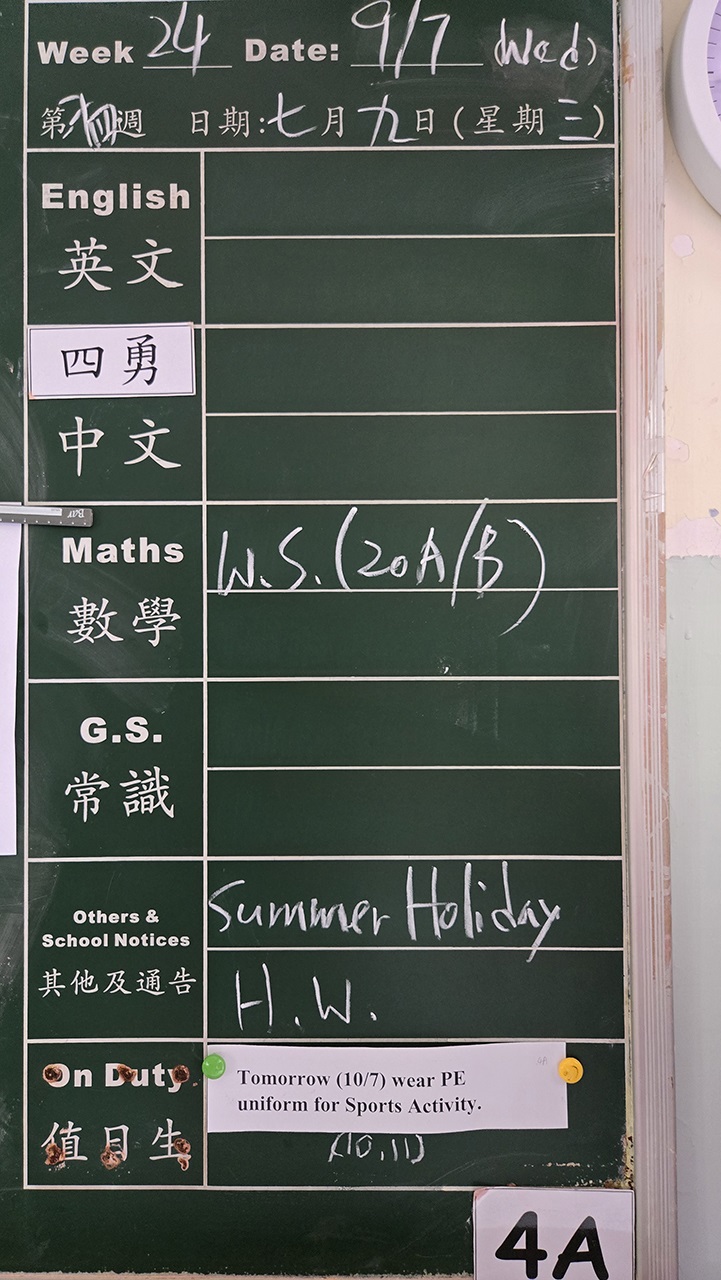 Week 24 Date: 9/7 (Wed)
第 週 日期:七月九日(星期三)
English
英文
四勇
中文
Maths W.S.(20A/B)
數學
G.S.
常識
Others &
School Notices
其他及通告
Summer Holiday
H.W.
On Duty
值日生
Tomorrow (10/7) wear PE
uniform for Sports Activity.
(10,11)
4A